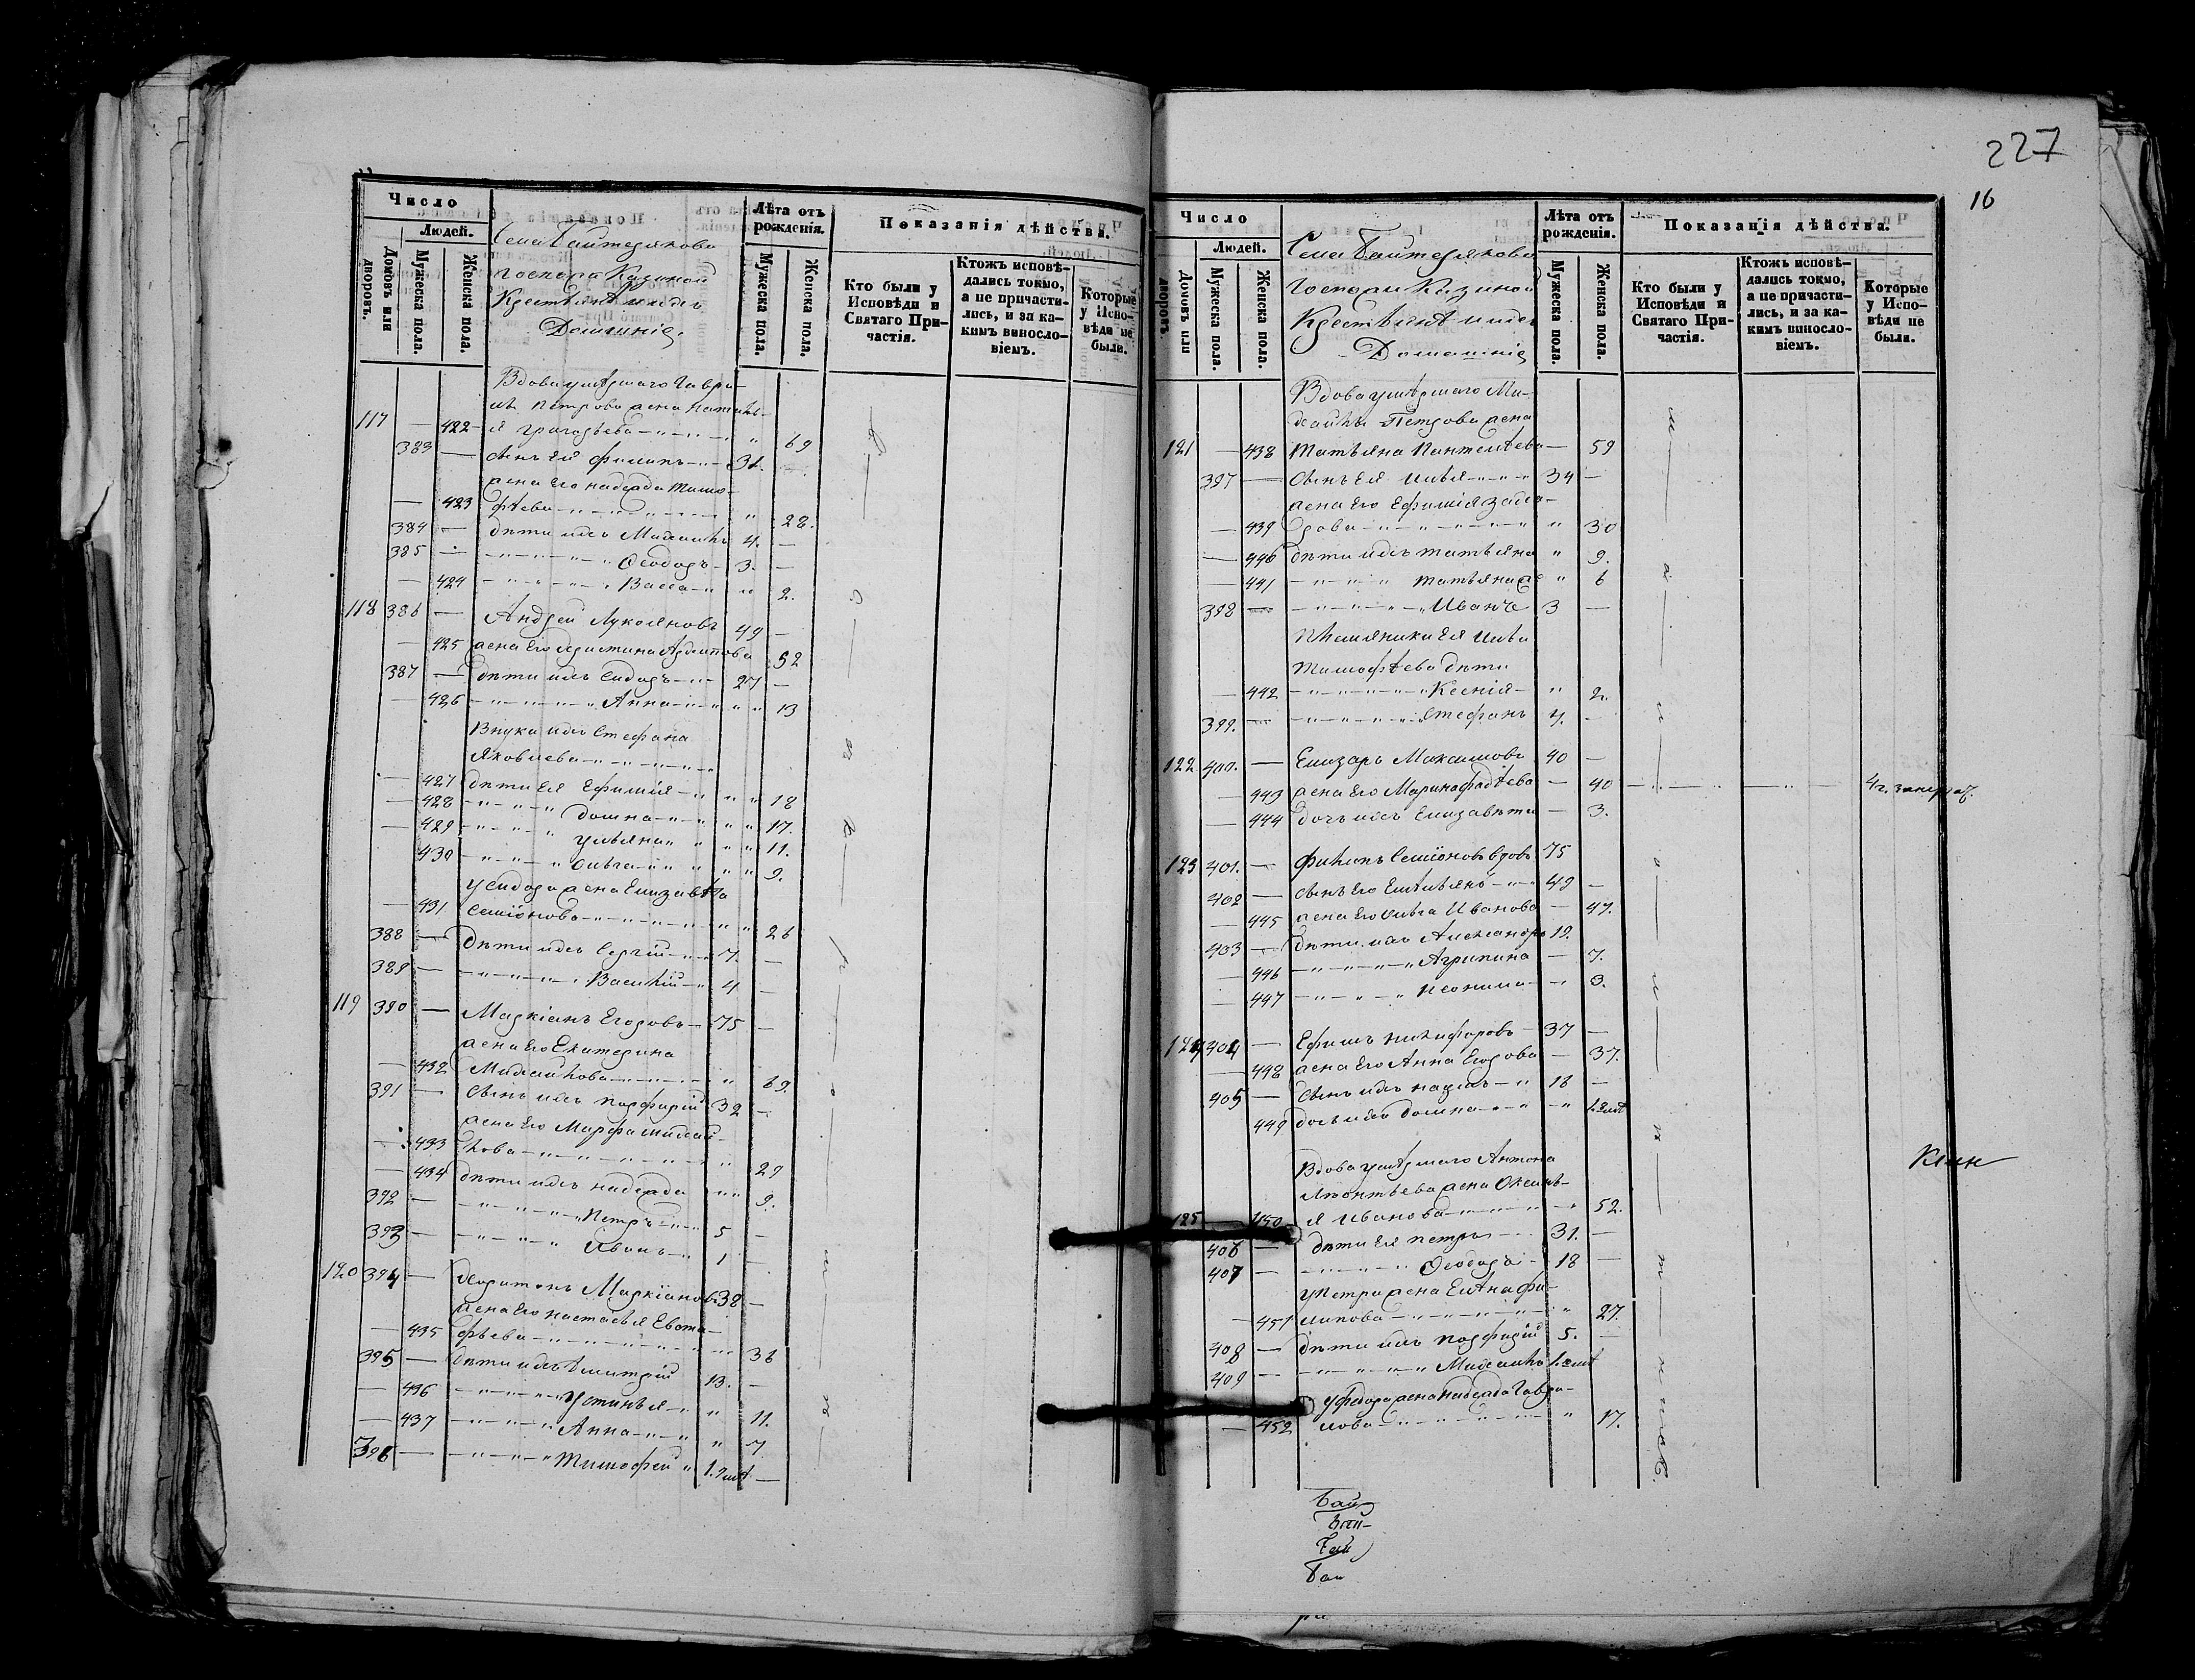 Число
Людей.
Домовъ или дворовъ.
Мужеска пола.
Женска пола.
Села Байтерякова
Казеной
Крестьяне и ихъ
Домашніе,
Лѣта отъ рожденія.
Мужеска пола.
Женска пола.
Показанія дѣйства.
Кто были у Исповѣди и Святаго Причастія.
Ктожъ исповѣдались токмо, а не причастились, и за какимъ винословіемъ.
Которые у Исповѣди не были.
Вдова умѣршаго Гаври-
ла Петрова жена
117 — 422 — я Григорьева 69
383 — сынъ Ея Филипъ 31.
жена Его надежда Тимо-
— 423 фѣева 28.
384 — дѣти ихъ Михаилъ 4. —
385 — Ѳеодоръ 3. —
— 424 Васса 2.
118 386 — Андрей Лукояновъ 49 —
— 425 жена Его Христина Архипова 52
387 — дѣти ихъ Сидоръ 27 —
— 426 Анна 13
Внуки ихъ Стефана
Яковлева
— 427 дѣти Ея Ефимія 18
— 428 домна 17.
— 429 ульяна 11.
430 Ольга 9.
У Сидора жена Елизавѣта
— 431 Семіонова 26
388 — дѣти ихъ Сергій 7. —
389 — Василій 4 —
119 390 — Маркіанъ Егоровъ 75 —
жена Его Екатерина
— 432 Михайлова 69.
391 — сынъ ихъ Порфирій 32 —
жена Его Марфа Михай-
— 433 лова 29
— 434 дѣти ихъ надежда 9.
392 — Петръ 5 —
393 — Иванъ 1 —
120 394 — Харитонъ Маркіановъ 38 —
жена Его настасья Евста-
— 435 фьева 36
395 — дѣти ихъ Дмитрій 13. —
— 436 Устинья 11.
— 437 Анна 7
396 — Тимофей 1.
227
16
Число
Людей.
Домовъ или дворовъ.
Мужеска пола.
Женска пола.
Села Байтерякова
Казеной
Крестьяне и ихъ
Домашніе
Лѣта отъ рожденія.
Мужеска пола.
Женска пола.
Показанія дѣйства.
Кто были у Исповѣди и Святаго Причастія.
Ктожъ исповѣдались токмо, а не причастились, и за какимъ винословіемъ.
Которые у Исповѣди не были.
Вдова умѣршаго Ми-
хайлы Петрова жена
121 — 438 Татьяна Пантелѣева — 59
397 — Сынъ Ея Илья 34 —
жена Его Ефимія Заха-
— 439 рова 30
— 440 дѣти ихъ татьяна 9.
— 441 татьяна 6
398 — Иванъ 3 —
племяники Ея Ильи
Тимофѣева дѣти
— 442 Ксенія 2.
399. — Стефанъ 7. —
122 400. — Елизаръ Максимовъ 40 —
— 443 жена Его Марина Фадѣева — 40
— 444 дочь ихъ Елизавѣта — 3.
123 401. — Филипъ Семіоновъ вдовъ 75
402 — сынъ Его Емѣльянъ 49 —
— 445 жена Его Ольга Иванова — 47.
403 — дѣти ихъ Александръ 19.
— 446 Агрипина — 7.
— 447 3.
124 404 — Ефимъ Никифоровъ 37 —
— 448 жена Его Анна Егорова — 37.
405 — сынъ ихъ 18 —
449 дочь ихъ домна
Вдова умѣршаго Антона
Лѣонтьева жена Оксинь-
125 — 450 я Иванова 52.
406 — дѣти Ея Петръ 31. —
407 — Ѳеодоръ 18 —
У Петра жена Елѣна Фи-
— 451 липова 27.
408 — дѣти ихъ Порфирій 5. —
409 — Михаилъ
У Федора жена надежда Гаври-
— 452 лова 17.